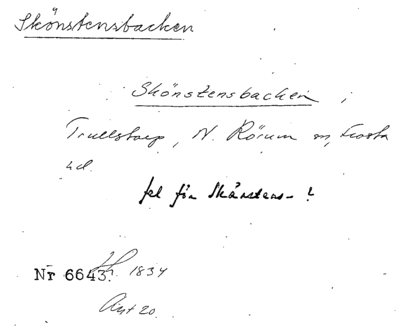 Skönstensbacken
Skönstensbacken,
Trullstorp, N. Rörum sn, Frosta
hd.
fel för Skånstens- !
Nr 6643. 1834
20